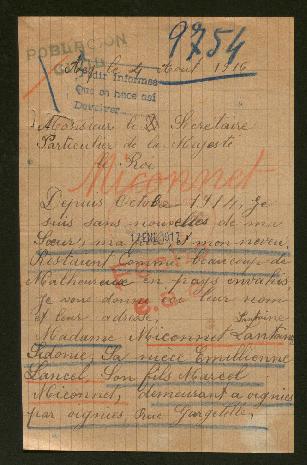 POBLACION
CIVIL
9754
Ay le 4 Aout 1916
Pedir informes
Que se hace asi
Devolver
Monsieur le Secrétaire
Particulier de la Majesté
le Roi
Miconnet
Depuis Octobre 1914, je
suis sans nouvelles de ma
Sœur, ma nièce, et mon neveu,
Restirent Comme beaucoup de
Malheureux en pays envahies
Je vous donne ici leur nom
et leur adresse.
Madame Miconnet Lantoine
Sidonie, Sa nièce Emillienne
Lancel, Son fils Marcel
Miconnet, demeurant a oignies
par oignies Rue Gargetelle,
12 ENE 1917